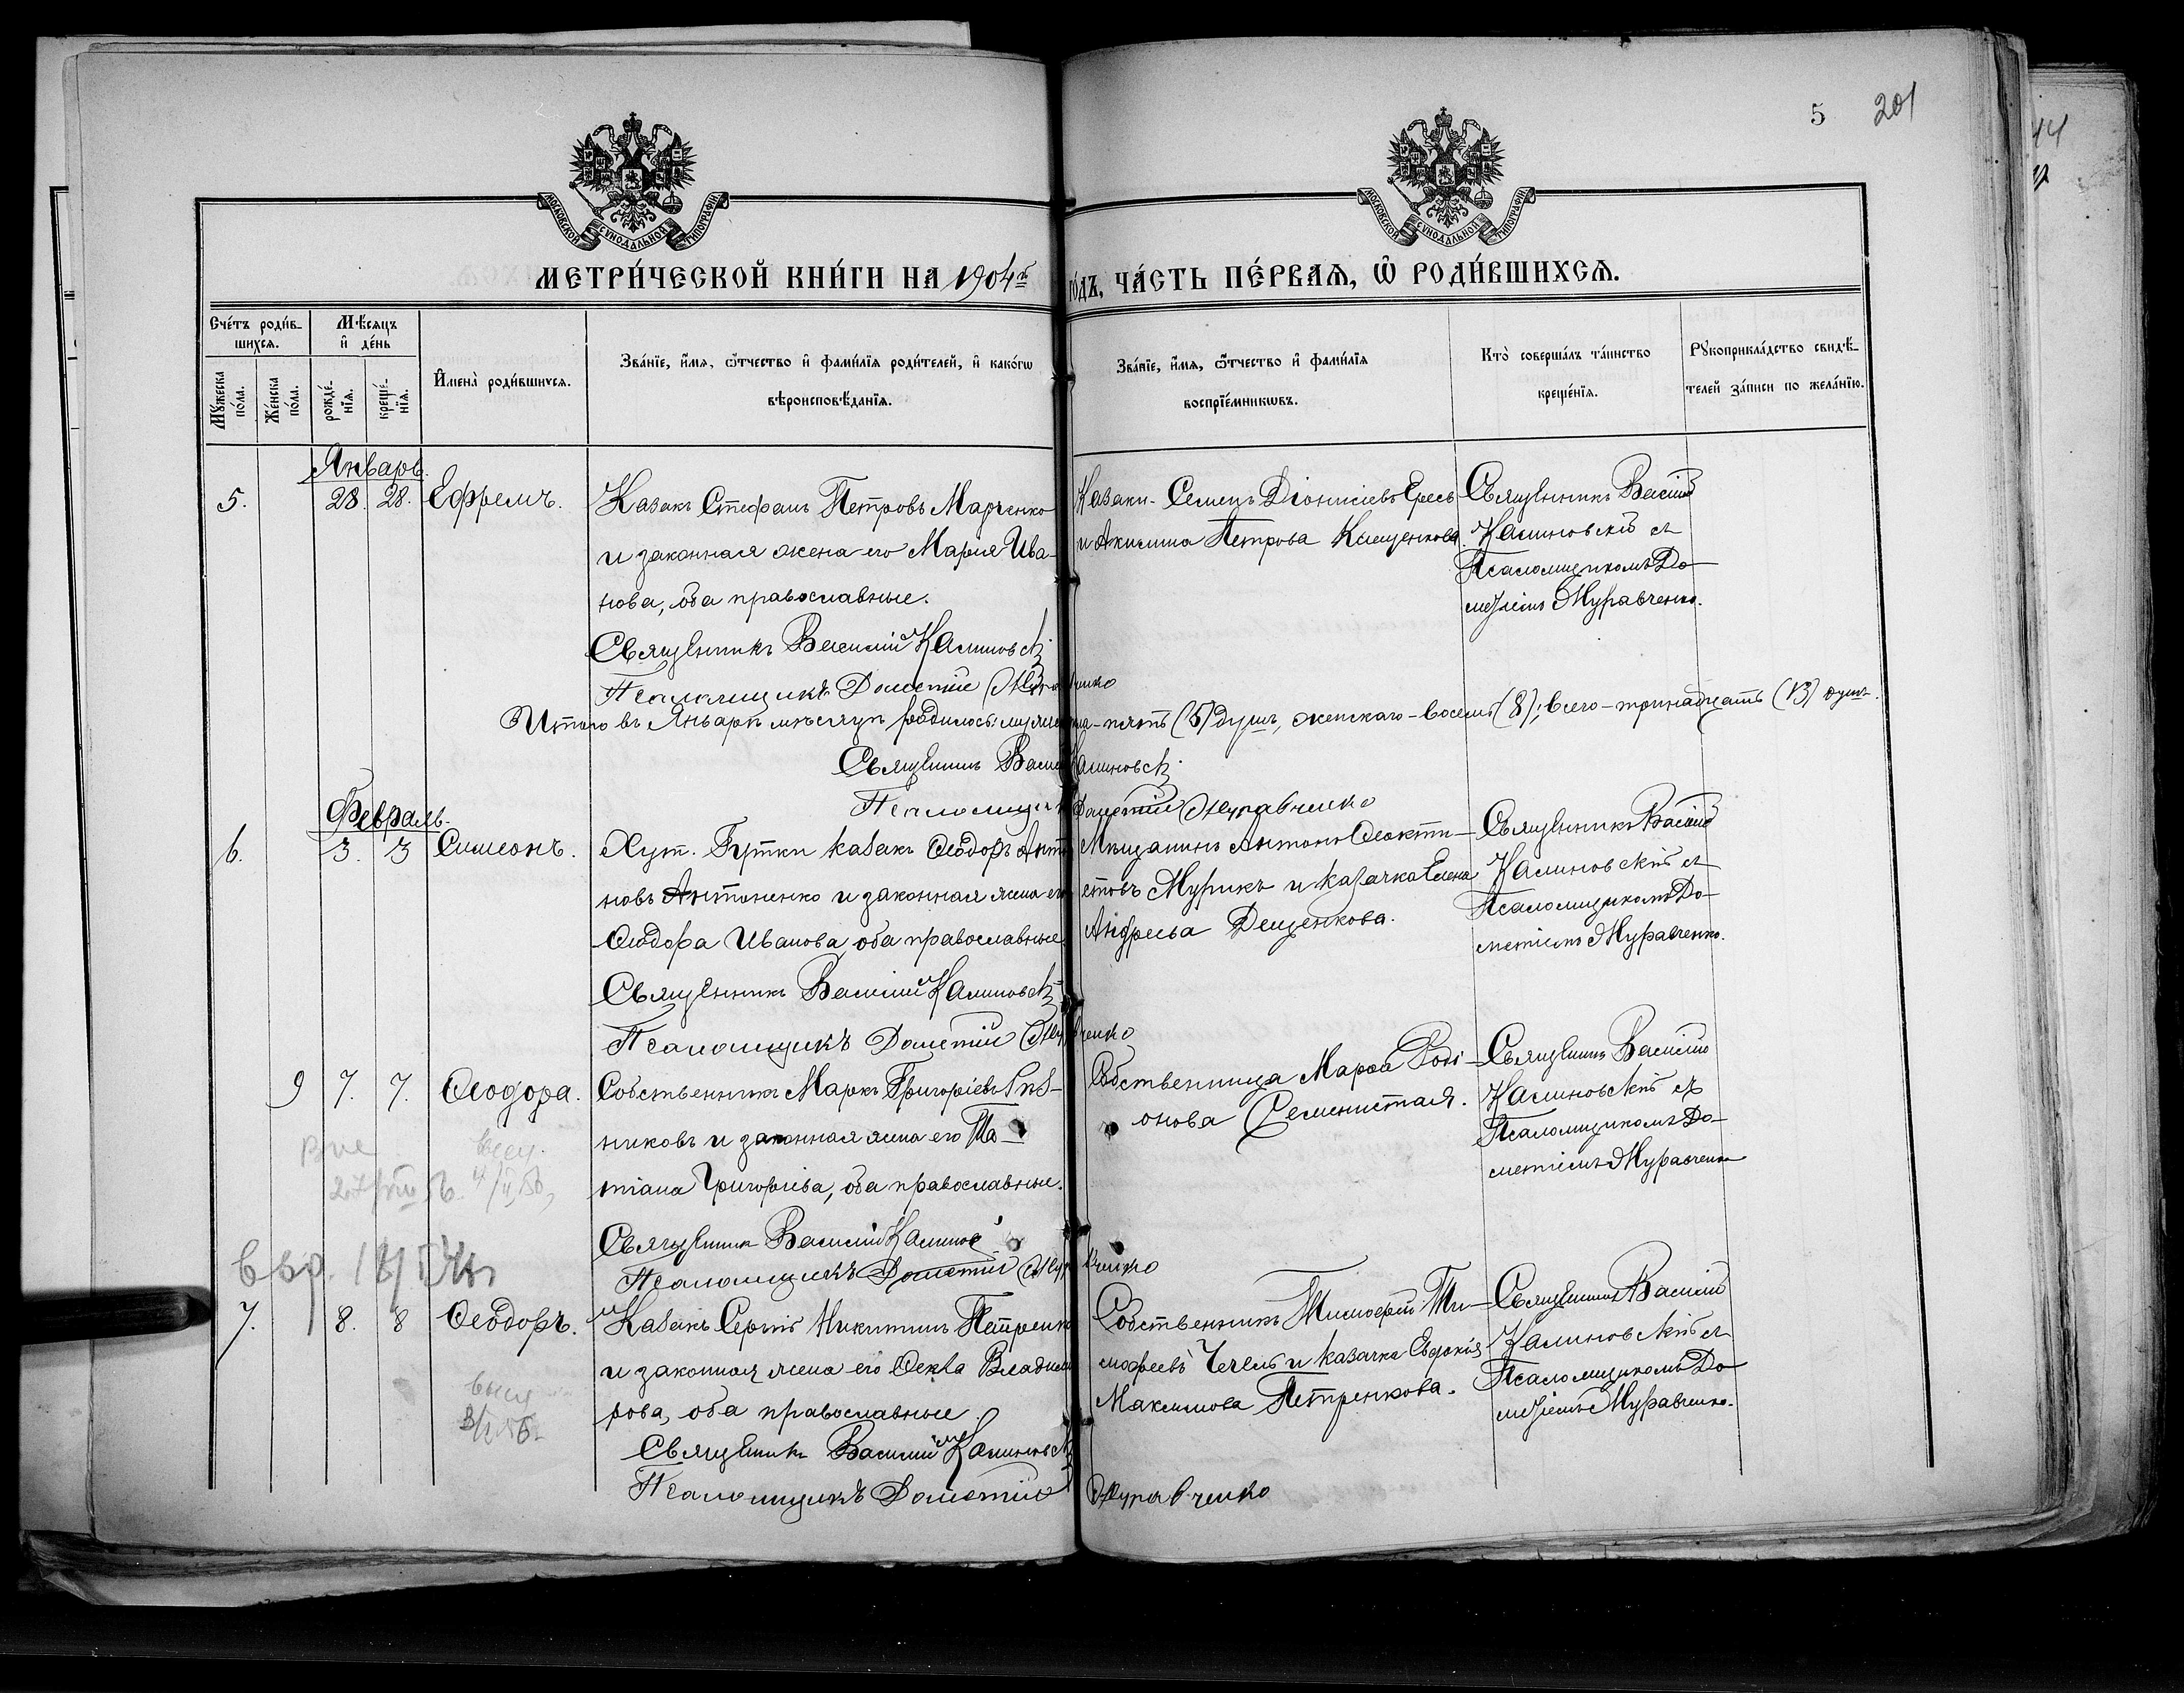 5 201
МОСКОВСКОЙ СѴНОДАЛЬНОЙ ТИПОГРАФІИ
МОСКОВСКОЙ СѴНОДАЛЬНОЙ ТИПОГРАФІИ
МЕТРИ́ЧЕСКОЙ КНИ́ГИ НА 1904й го́дъ, ЧА́СТЬ ПЕ́РВАѦ, Ѡ РОДИ́ВШИХСѦ.
Сче́тъ роди́в-
шихсѧ.
Мꙋ́жеска по́ла.
Же́нска по́ла.
Мѣ́сѧцъ
и҆ де́нь
рожде́-
нїѧ.
креще́-
нїѧ.
И҆мена̀ роди́вшихсѧ.
Зва́нїе, и҆́мѧ, ѻ҆́тчество и҆ фами́лїѧ роди́телей, и҆ како́гѡ
вѣроисповѣ́данїѧ.
Зва́нїе, и҆́мѧ, ѻ҆́тчество и҆ фами́лїѧ
воспрїе́мникѡвъ.
Кто̀ соверша́лъ та́инство
креще́нїѧ.
Рꙋкоприкла́дство свидѣ́-
телей за́писи по жела́нїю.
Январь.
5. 28. 28. Ефремъ.
Казакъ Стефанъ Петровъ Марченко
и законная жена его Марія Ива-
нова, оба православные.
Священникъ Василій Калиновскій
Псаломщикъ Дометій Муравченко
Казаки Семенъ Діонисіевъ Ересь
и Акилина Петрова Клещенкова.
Священникъ Василій
Калиновскій съ
Псаломщикомъ До-
метіемъ Муравченко.
Итого въ Январѣ мѣсяцѣ родилось: мужеска-пять (5) душъ, женскаго-восемь (8); всего-тринадцать (13) душъ.
Священникъ Василій Калиновскій
Псаломщикъ Дометій Муравченко
Февраль.
6. 3. 3 Симеонъ.
Хут. Гутки казакъ Ѳеодоръ Анто
новъ Антоненко и законная жена его
Ѳеодора Иванова, оба православные.
Священникъ Василій Калиновскій
Псаломщикъ Дометій Муравченко
Мѣщанинъ Антонъ Ѳеокти-
стовъ Мурикъ и казачка Елена
Андреева Дещенкова.
Священникъ Василій
Калиновскій съ
Псаломщикомъ До-
метіемъ Муравченко.
9 7. 7. Ѳеодора.
Собственникъ Маркъ Григоріевъ
никовъ и законная жена его Та-
тіана Григоріева, оба православные.
Священникъ Василій Калинов
Псаломщикъ Дометій Муравченко
Собственница Марѳа Роді-
онова Семенистая.
Священникъ Василій
Калиновскій съ
Псаломщикомъ До-
метіемъ Муравченко
7. 8. 8 Ѳеодоръ.
Казакъ Сергій Никитинъ Петренко
и законная жена его Ѳекла Владими
рова, оба православные.
Священникъ Василій Калиновскій
Псаломщикъ Дометій Муравченко
Собственникъ Тимофей Ти-
мофеевъ Чечель и казачка Евдокія
Максимова Петренкова.
Священникъ Василій
Калиновскій съ
Псаломщикомъ До-
метіемъ Муравченко.